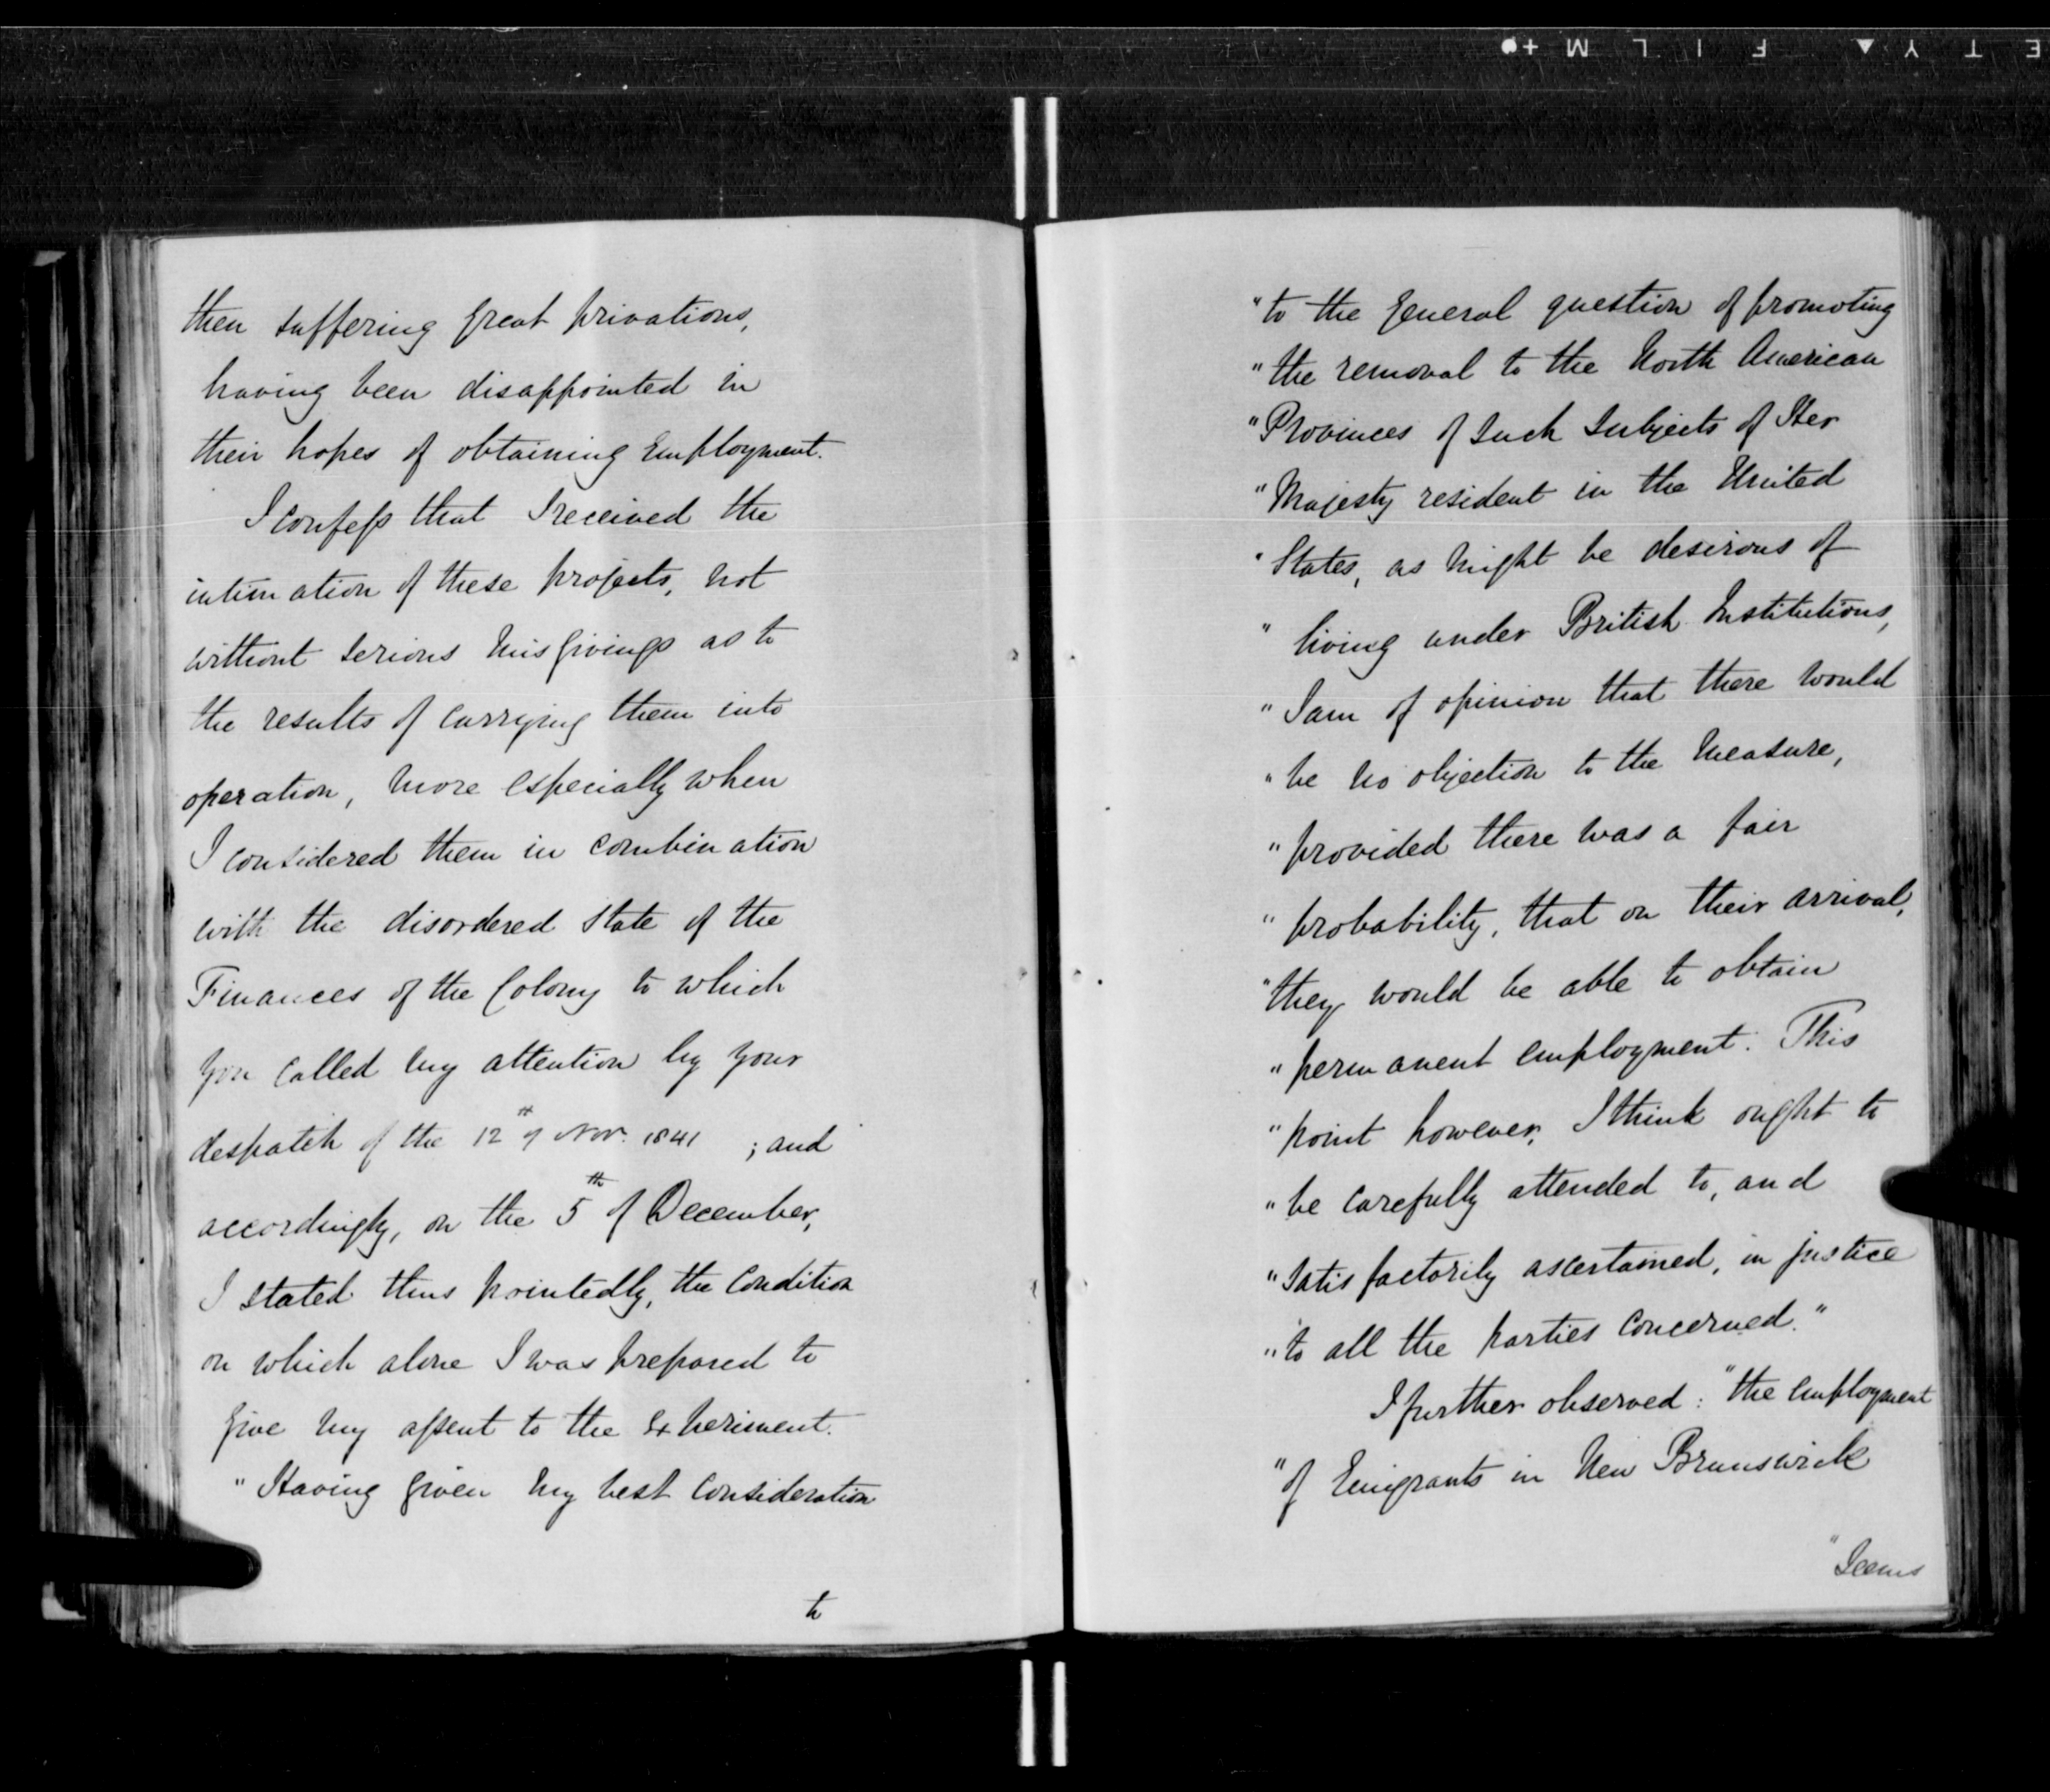 then suffering great privations,
having been disappointed in
their hopes of obtaining Employment.
I confess that I received the
intimation of these projects, not
without serious misgivings as to
the results of carrying them into
operation, more especially when
I considered them in combination
with the disordered state of the
Finances of the Colony to which
you called my attention by your
despatch of the 12th of Nov. 1841 ; and
accordingly, on the 5th of December,
I stated thus pointedly, the Condition
on which alone I was prepared to
give my assent to the Experiment.
"Having given my best Consideration
to
"to the general question of promoting
"the removal to the North American
"Provinces of such Subjects of Her
"Majesty resident in the United
"States, as might be desirous of
"living under British Institutions,
"I am of opinion that there would
"be no objection to the measure,
"provided there was a fair
"probability, that on their arrival,
"they would be able to obtain
"permanent employment. This
"point however, I think ought to
"be carefully attended to, and
"satisfactorily ascertained, in justice
"to all the parties concerned."
I further observed: "the employment
"of Emigrants in New Brunswick
"Seems
E T Y ▲ F I L M +●